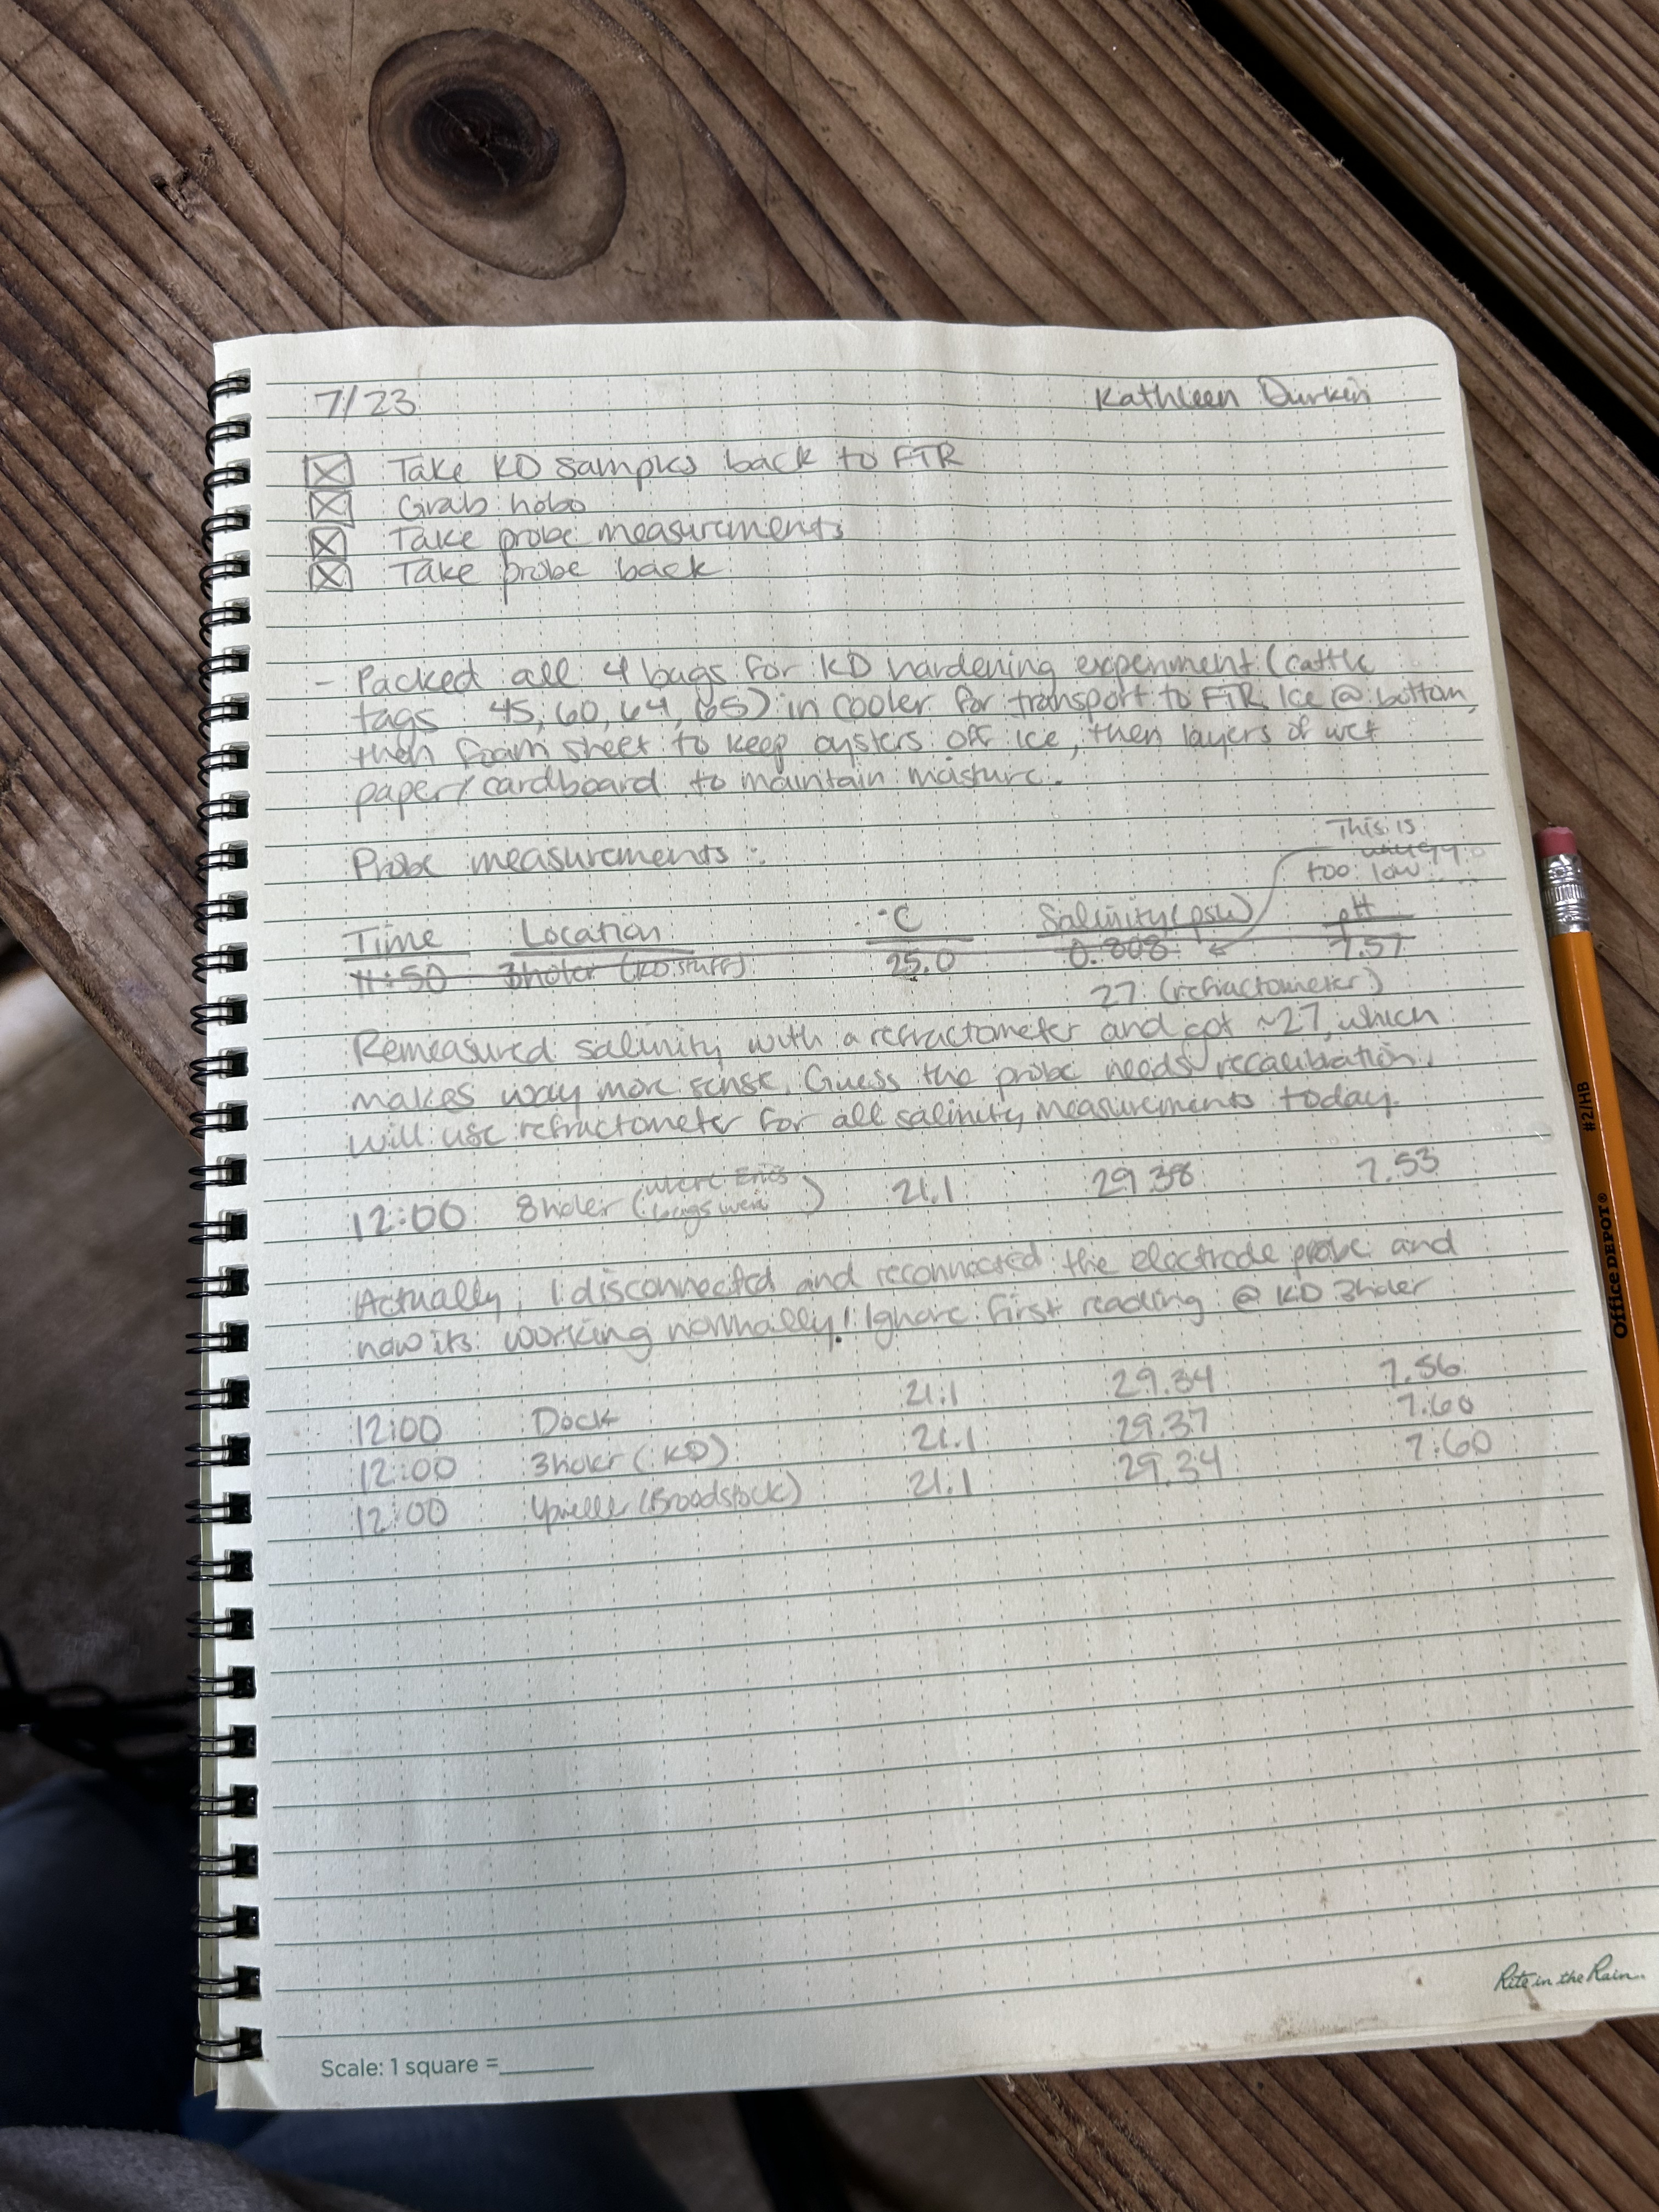 7/23 Kathleen Durkin
Take KD samples back to FTR
Grab hobo
Take probe measurements
Take probe back
- Packed all 4 bags for KD hardening experiment (cattle
tags 45, 60, 64, 65) in cooler for transport to FTR. Ice @ bottom,
then foam sheet to keep oysters off ice, then layers of wet
paper/cardboard to maintain moisture.
This is
too low
Probe measurements:
Time Location °C Salinity (psu) pH
11:50 3holer (KD stuff) 25.0 0.808 7.57
27 (refractometer)
Remeasured salinity with a refractometer and got ~27, which
makes way more sense. Guess the probe needs recalibration.
will use refractometer for all salinity measurements today.
12:00 8holer (where Eric's bags were) 21.1 29.38 7.53
Actually, I disconnected and reconnected the electrode probe and
now its working normally! Ignore first reading @ KD 3holer
12:00 Dock 21.1 29.34 7.56
12:00 3holer (KD) 21.1 29.37 7.60
12:00 (Broodstock) 21.1 29.34 7.60
Rite in the Rain
Scale: 1 square =
Office DEPOT® #2/HB